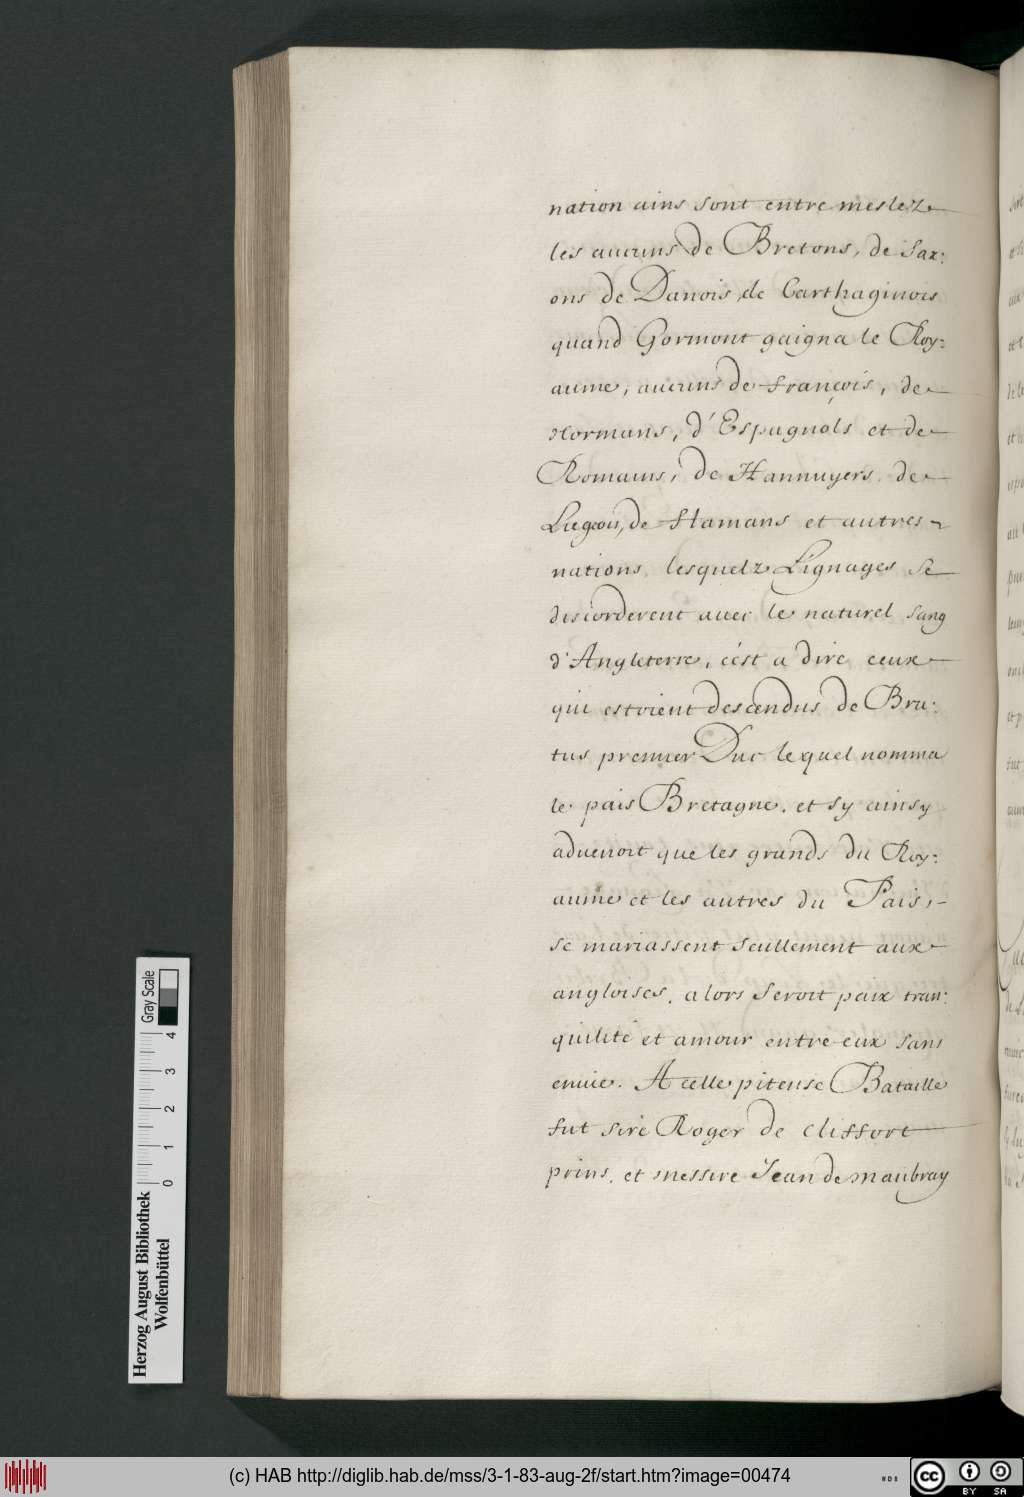 nation ains sont entre meslez
les aucuns de Bretons, de Sax:
ons de Danois, de Carthaginois
quand Gormont gaigna le Roy:
aume, aucuns de françois, de
Normans, d'Espagnols et de
Romains, de Hannuyers. de
Liegeois, de flamans et autres
nations, lesquelz Lignages se
discorderent avec le naturel sang
d'Angleterre, c'est a dire ceux
qui estoient descendus de Bru:
tus premier Duc lequel nomma
le pais Bretagne. et sy ainsy
advenoit que les grands du Roy:
aume et les autres du Pais,
se mariassent seullement aux
angloises, alors seroit paix tran:
quilité et amour entre eux sans
envie. A celle piteuse Bataille
fut sire Roger de Cliffort
prins, et messire Jean de maubray
Herzog August Bibliothek
Wolfenbüttel
0 1 2 3 4
Gray Scale
(c) HAB http://diglib.hab.de/mss/3-1-83-aug-2f/start.htm?image=00474
WDB
cc BY SA